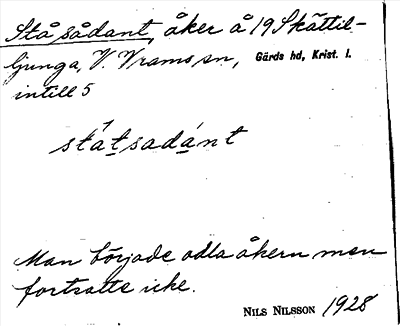 Stå sådant, åker å 19 Skättil-
ljunga, V. Vrams sn, Gärds hd, Krist. l.
intill 5
státsadánt
Man började odla åkern men
fortsatte icke.
NILS NILSSON 1928